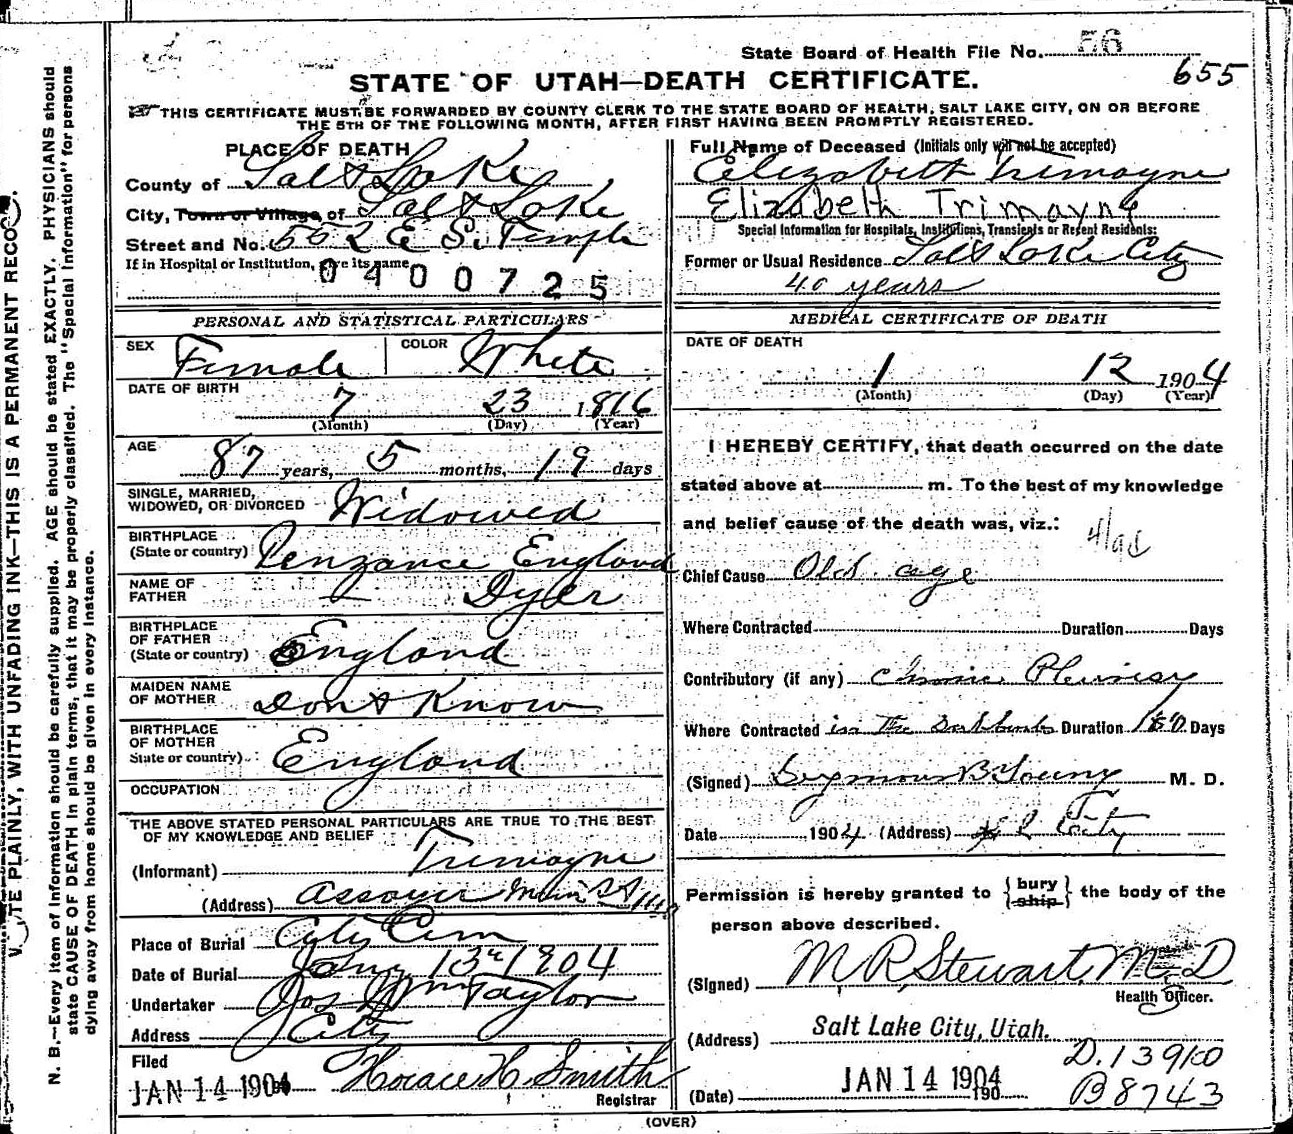 State Board of Health File No. 56
655
STATE OF UTAH—DEATH CERTIFICATE.
THIS CERTIFICATE MUST BE FORWARDED BY COUNTY CLERK TO THE STATE BOARD OF HEALTH, SALT LAKE CITY, ON OR BEFORE
THE 5TH OF THE FOLLOWING MONTH, AFTER FIRST HAVING BEEN PROMPTLY REGISTERED.
PLACE OF DEATH
County of Salt Lake
City, Town or Village of Salt Lake
Street and No. 552 E S. Temple
If in Hospital or Institution, give its name
0400725
Full Name of Deceased (Initials only will not be accepted)
Elizabeth Trimayne
Elizabeth Trimayne
Special Information for Hospitals, Institutions, Transients or Recent Residents:
Former or Usual Residence Salt Lake City
40 years
PERSONAL AND STATISTICAL PARTICULARS
SEX Female COLOR White
DATE OF BIRTH
7 23 1816
(Month) (Day) (Year)
AGE
87 years, 5 months, 19 days
SINGLE, MARRIED,
WIDOWED, OR DIVORCED Widowed
BIRTHPLACE
(State or country) Penzance England
NAME OF
FATHER Dyer
BIRTHPLACE
OF FATHER
(State or country) England
MAIDEN NAME
OF MOTHER Dont Know
BIRTHPLACE
OF MOTHER
State or country) England
OCCUPATION
THE ABOVE STATED PERSONAL PARTICULARS ARE TRUE TO THE BEST
OF MY KNOWLEDGE AND BELIEF
(Informant) Tremayne
(Address) Assayer Main St
Place of Burial City Cem
Date of Burial Jany 13th 1904
Undertaker Jos Wm Taylor
Address City
Filed
JAN 14 1904 Horace H. Smith
Registrar
MEDICAL CERTIFICATE OF DEATH
DATE OF DEATH
1 12 1904
(Month) (Day) (Year)
I HEREBY CERTIFY, that death occurred on the date
stated above at m. To the best of my knowledge
and belief cause of the death was, viz.:
Chief Cause Old age
Where Contracted Duration Days
Contributory (if any) Chronic Pleurisy
Where Contracted in the Duration 180 Days
(Signed) Seymour B Young M. D.
Date 1904 (Address) S L City
Permission is hereby granted to { bury ship } the body of the
person above described.
(Signed) M R Stewart, M.D
Health Officer.
(Address) Salt Lake City, Utah.
D.139100
(Date) JAN 14 1904
190
B 8743
(OVER)
WRITE PLAINLY, WITH UNFADING INK—THIS IS A PERMANENT RECORD.
N. B.—Every item of information should be carefully supplied. AGE should be stated EXACTLY. PHYSICIANS should
state CAUSE OF DEATH in plain terms, that it may be properly classified. The "Special Information" for persons
dying away from home should be given in every instance.